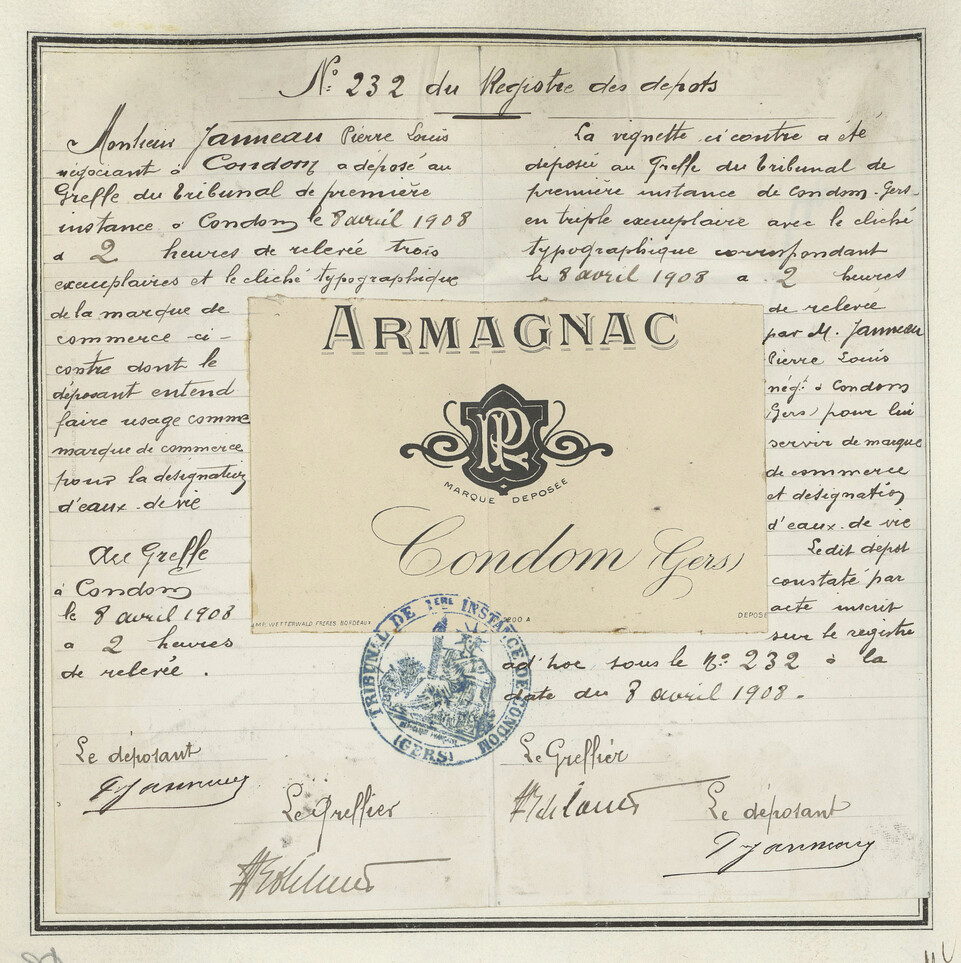 Nº 232 du Registre des depots
Monsieur Janneau Pierre Louis
négociant à Condom a deposé au
Greffe du tribunal de première
instance à Condom le 8 avril 1908
à 2 heures de relevée trois
exemplaires et le cliché typographique
de la marque de
commerce ci-
contre dont le
déposant entend
faire usage comme
marque de commerce
pour la designation
d'eaux de vie
Au Greffe
à Condom
le 8 avril 1908
à 2 heures
de relevée.
Le déposant
PJanneau
Le Greffier
La vignette ci contre a été
déposée au Greffe du tribunal de
première instance de Condom-Gers-
en triple exemplaire avec le cliché
typographique correspondant
le 8 avril 1908 a 2 heures
de relevée
par M. Janneau
Pierre Louis
négt. à Condom
(Gers) pour lui
servir de marque
de commerce
et désignation
d'eaux de vie
Ledit dépot
constaté par
acte inscrit
sur le registre
ad'hoc sous le Nº 232 à la
date du 8 avril 1908.
Le Greffier
Le déposant
PJanneau
ARMAGNAC
PR
MARQUE DEPOSÉE
Condom (Gers)
IMP. WETTERWALD FRÈRES. BORDEAUX
DEPOSÉ
TRIBUNAL DE 1ERE INSTANCE DE CONDOM
(GERS)